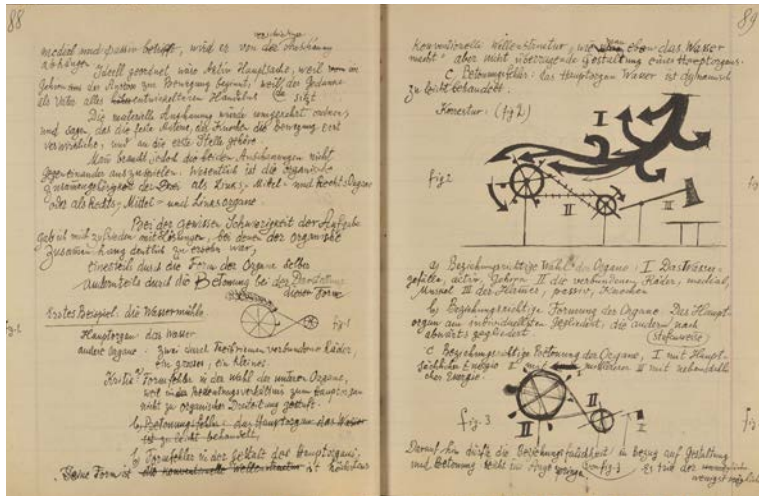 88
medial und passiv betrifft, wird es von der Anschauung
abhängen.
Ideell geordnet wäre Aktiv Hauptsache, weil im
Gehirn aus der Anstoss zur Bewegung beginnt, weil der Gedanke
als Vater alles entwickelteren Handelns da sitzt
Die materielle Anschauung würde umgekehrt ordnen,
und sagen, das die feste Artens, der Knochen die Bewegung erst
verwirkliche, und an die erste Stelle gehöre.
Man braucht jedoch die beiden Anschauungen nicht
gegeneinander auszuspielen. Wesentlich ist die organische
Zusammengehörigkeit der Drei als Links, Mittel- und Rechts Organe
oder als Rechts, Mittel- und Linksorgane.
Bei der gewissen Schwierigkeit der Aufgabe
gab ich mich zufrieden mit Lösungen, bei denen der organische
Zusammenhang deutlich zu ersehen war,
einesteils durch die Form der Organe selber
andernteils durch die Betonung bei der Darstellung
dieser Form
Erstes Beispiel. die Wassermühle.
fig 1
Hauptorgan das Wasser
andere Organe: zwei durch Treibriemen verbundene Räder,
ein grosses, ein kleines.
Kritik: a) Formfehler in der Wahl der unteren Organe,
weil in der Bedeutungsverhältnis zum Hauptorgan
nicht zu organischer Dreiteilung gestuft.
b) Betonungsfehler: das Hauptorgan das Wasser
ist zu leicht behandelt,
b) Formfehler in der Gestalt des Hauptorgans;
Seine Form ist die konventionelle Wellenstruktur ist höchstens
89
konventionelle Wellenstruktur, wie man eben das Wasser
"macht" aber nicht überzeugende Gestaltung eines Hauptorgans.
c) Betonungsfehler: das Hauptorgan Wasser ist dynamisch
zu leicht behandelt.
Korrektur: (fig 2)
I
fig 2
II
III
a) Beziehungsrichtige Wahl der Organe: I Das Wasser-
gefälle, aktiv, Gehirn II die verbundenen Räder, medial,
Muskel III der Hammer, passiv, Knochen
b) Beziehungsrichtige Formung der Organe. Das Haupt-
organ am individuellsten gegliedert, die andern nach
abwärts gegliedert.
stufenweise
c) Beziehungsrichtige Betonung der Organe, I mit Haupt-
sächlicher Energie II mit mittlerer III mit nebensächli-
cher Energie.
fig. 3
II
II
Darauf hin dürfte die Beziehungsfalschheit in bezug auf Gestaltung
und Betonung leicht ins Auge springen (von fig 3. Es trie der
weniger möglich